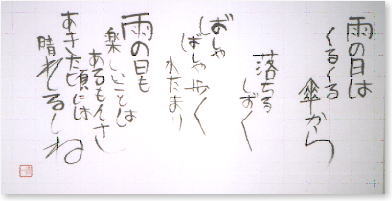 雨の日は
くるくる
傘から
落ちる
しずく
ばしゃ
ばしゃ歩く
水たまり
雨の日も
楽しいことは
あるもんさ
あきた頃には
晴れてるしね